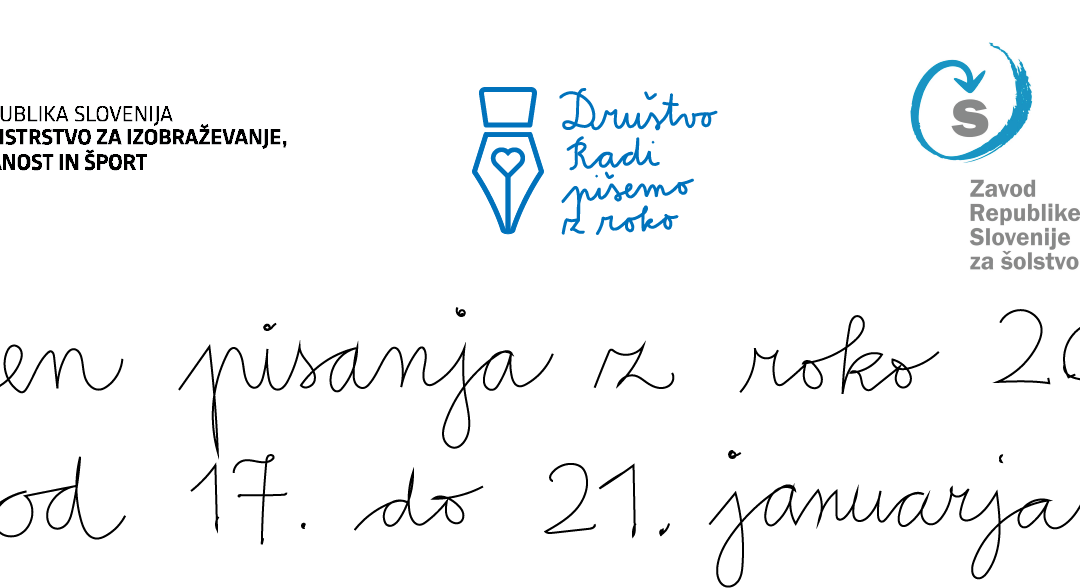 UBLIKA SLOVENIJA
ISTRSTVO ZA IZOBRAŽEVANJE,
NOST IN ŠPORT
Društvo
Radi
pišemo
z roko
Š
Zavod
Republike
Slovenije
za šolstvo
en pisanja z roko 20
od 17. do 21. januarja